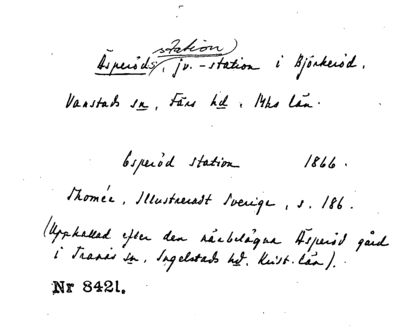 station
Äsperöds, jv.-station i Björkeröd,
Vanstads sn, Färs hd, Mhs län.
Esperöd station 1866.
Thomée, Illustreradt Sverige, s. 186.
(Uppkallad efter den närbelägna Äsperöd gård
i Tranås sn, Ingelstads hd, Krist. län).
Nr 8421.